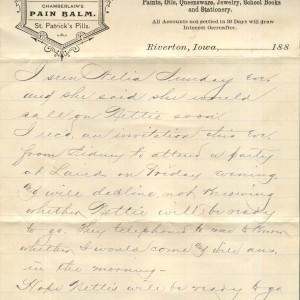 CHAMBERLAIN'S
PAIN BALM.
St. Patrick's Pills.
Paints, Oils, Queensware, Jewelry, School Books
and Stationery.
All Accounts not settled in 30 Days will draw
Interest thereafter.
Riverton, Iowa, 188
I seen Delia Sunday Eve
and she said she would
call on Nettie soon
I recd. an invitation this Eve
from Sidney to attend a party
at Lairds on Friday evening.
I will decline, not knowing
whether Nettie will be ready
to go. They telephoned to me to know
whether I would come & I will ans.
in the morning—
Hope Nettie will be ready to go